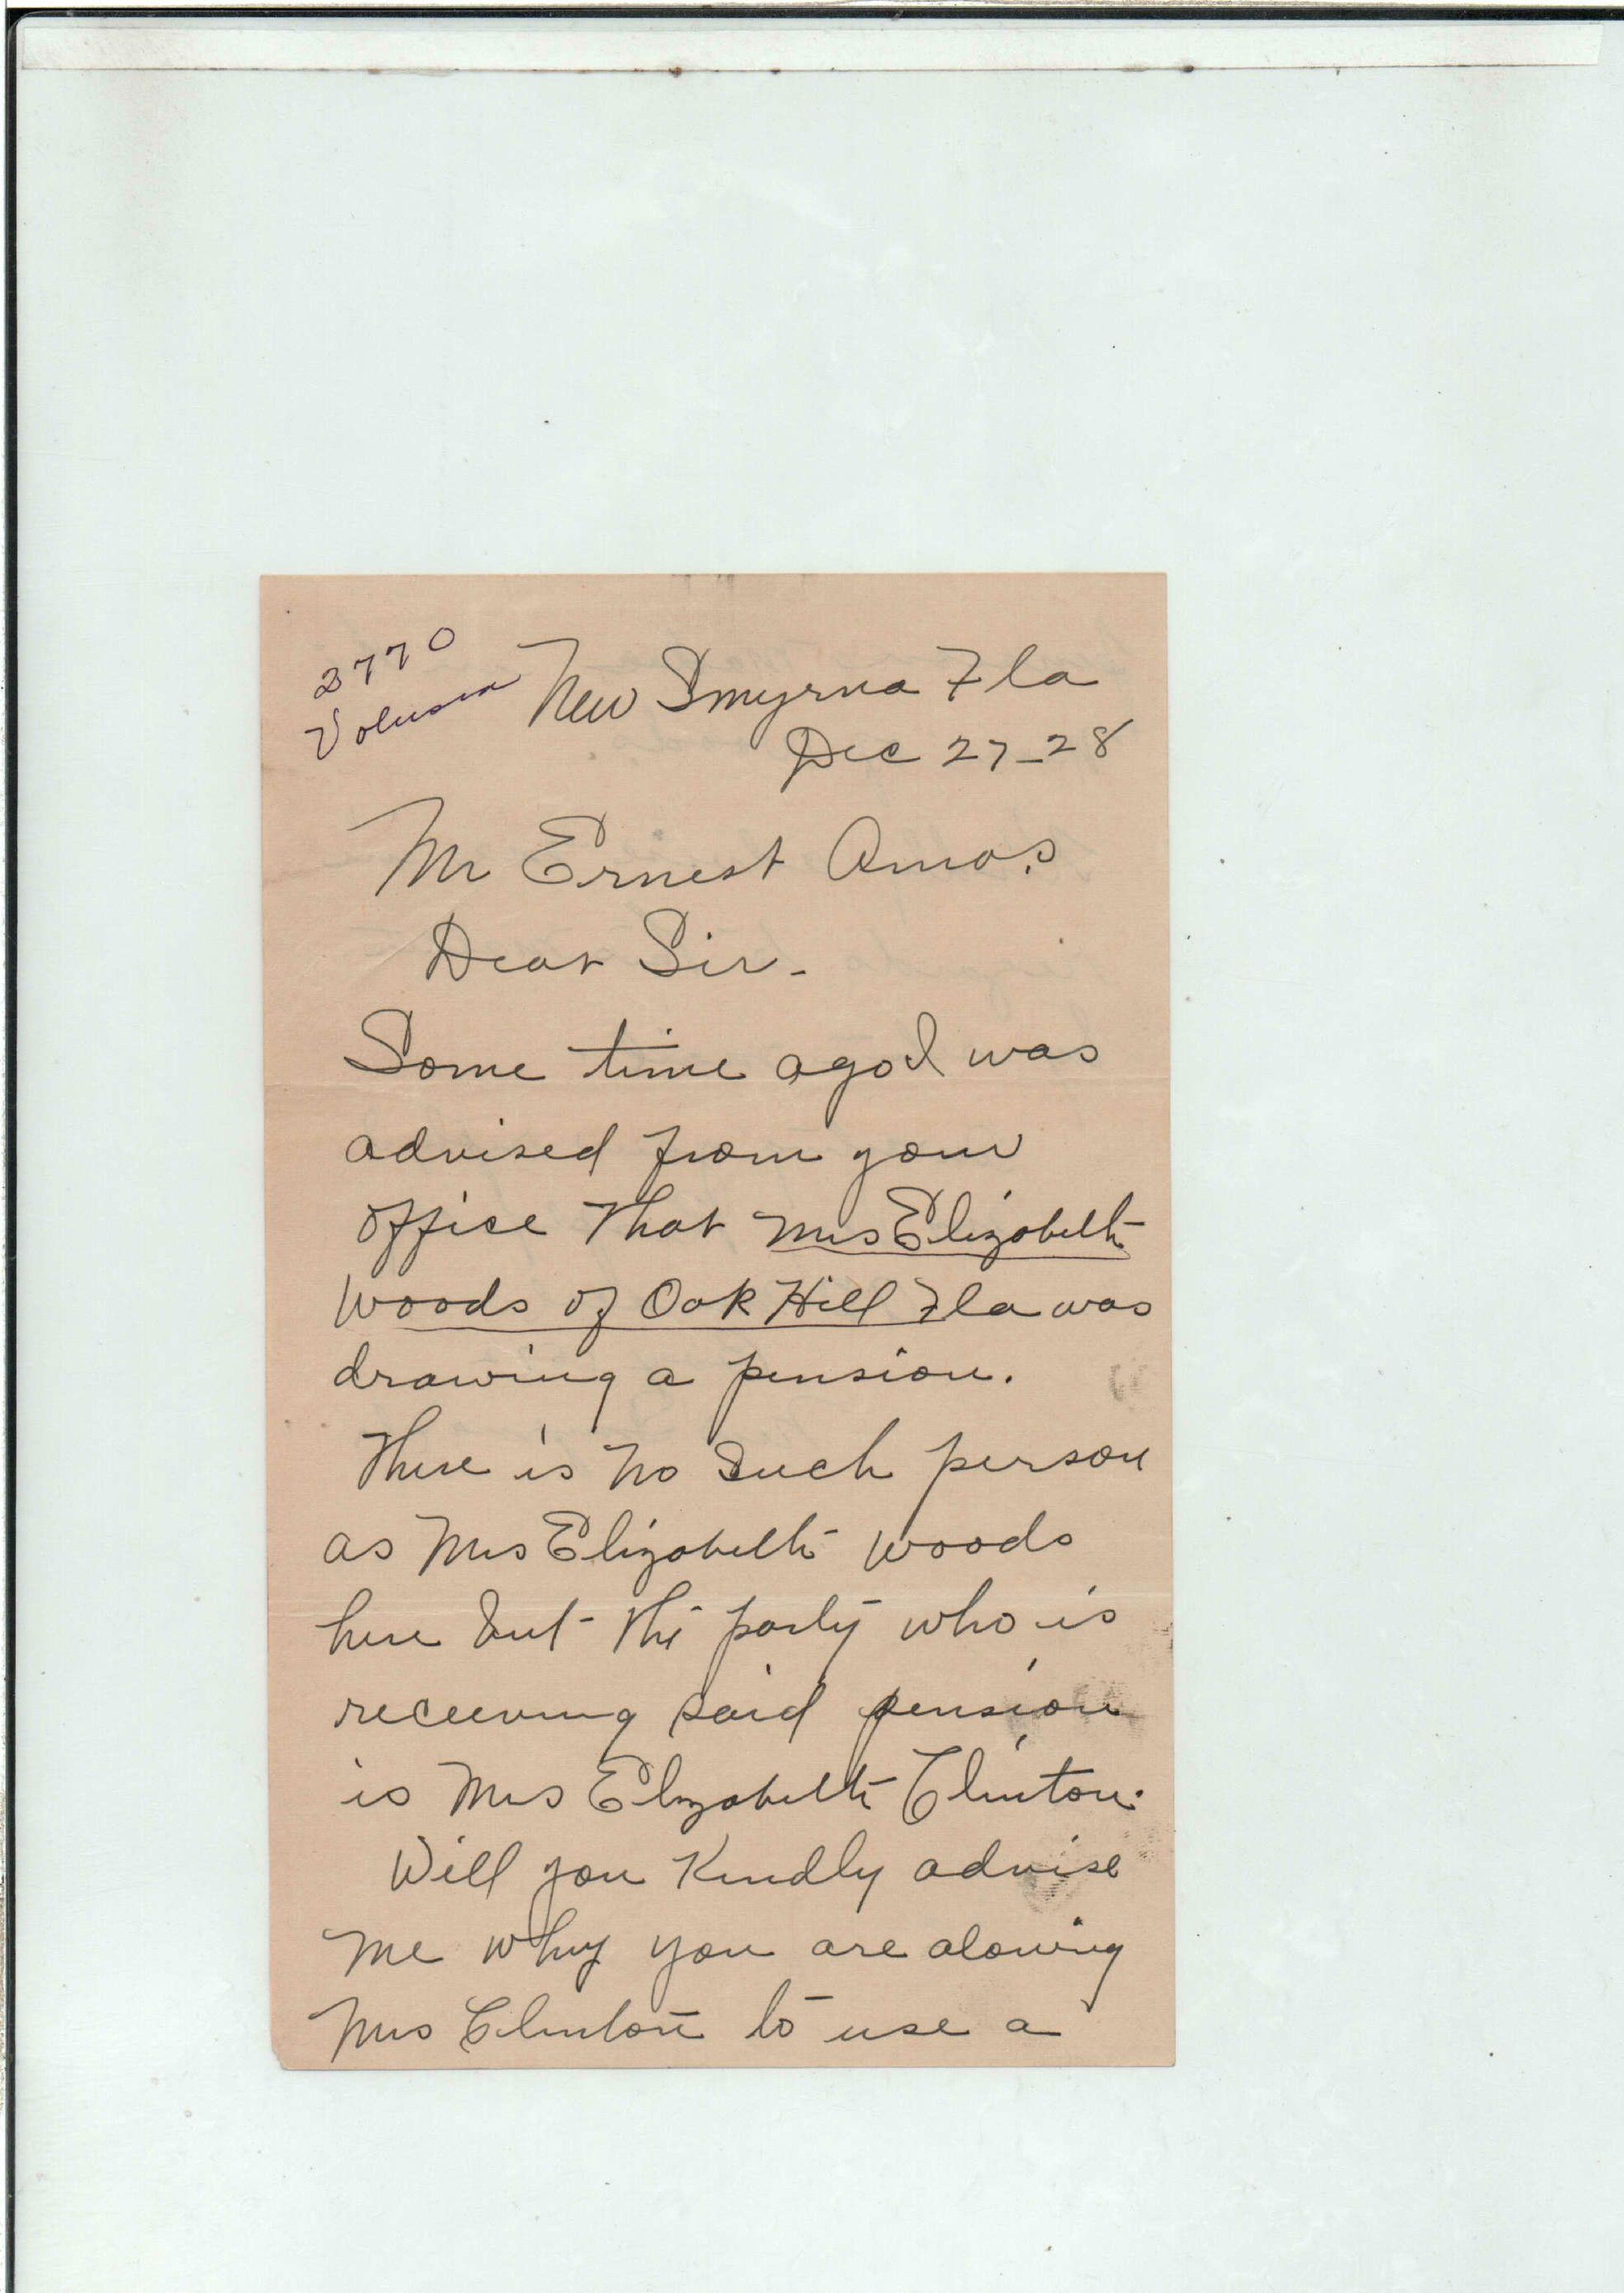 2770
Volusia
New Smyrna Fla
Dec 27-28
Mr Ernest Amos.
Dear Sir-
Some time ago I was
advised from your
office that Mrs Elizabeth
Woods of Oak Hill Fla was
drawing a pension.
There is no such person
as Mrs Elizabeth Woods
here but the party who is
receeving said pension
is Mrs Elizabeth Clinton.
Will you Kindly advise
me why you are alowing
Mrs Clinton to use a